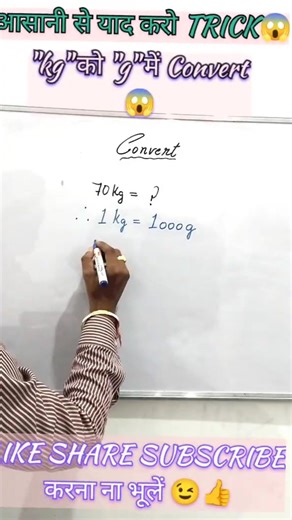 आसानी से याद करो TRICK😱
"kg"को "g"में Convert
😱
Convert
70kg = ?
∴ 1 kg = 1000g
IKE SHARE SUBSCRIBE
करना ना भूलें 😉👍